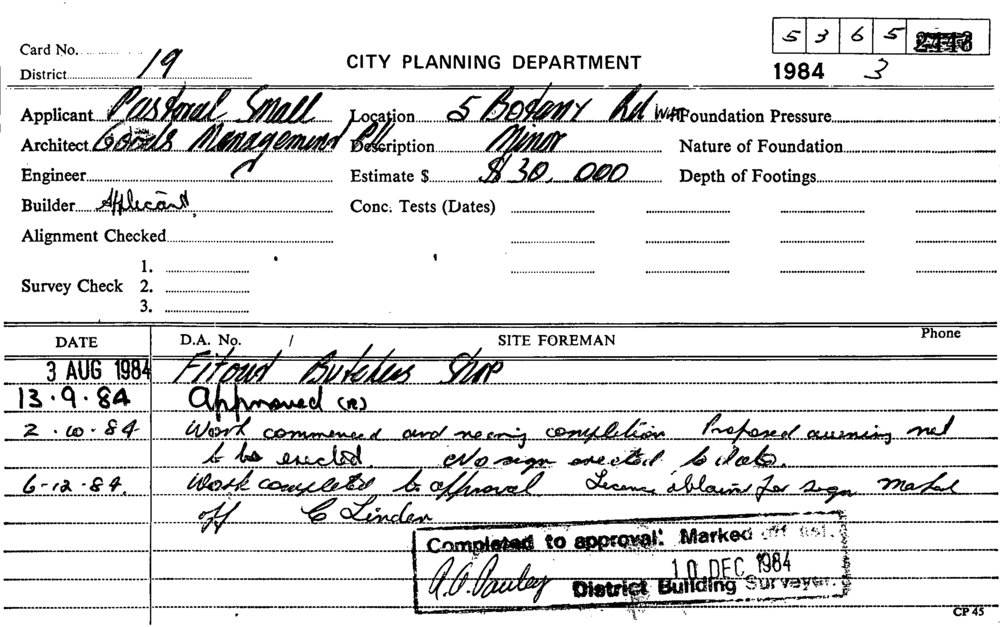 5 3 6 5
Card No.
CITY PLANNING DEPARTMENT
District 19
1984 3
Applicant Pastoral Small Location 5 Botany Rd Wat Foundation Pressure
Architect Goods Management P/L Description Minor Nature of Foundation
Engineer Estimate $ $ 30,000 Depth of Footings
Builder Applicant Conc. Tests (Dates)
Alignment Checked
1.
Survey Check 2.
3.
DATE D.A. No. / SITE FOREMAN Phone
3 AUG 1984 Fitout Butchers Shop
13.9.84 Approved (R)
2.10.84 Work commenced and nearing completion Proposed awning not
to be erected. No sign erected to date.
6-12-84. Work completed to approval Licence obtained for sign Marked
off C Linden
Completed to approval: Marked off list.
10 DEC 1984
District Building Surveyor.
CP 45